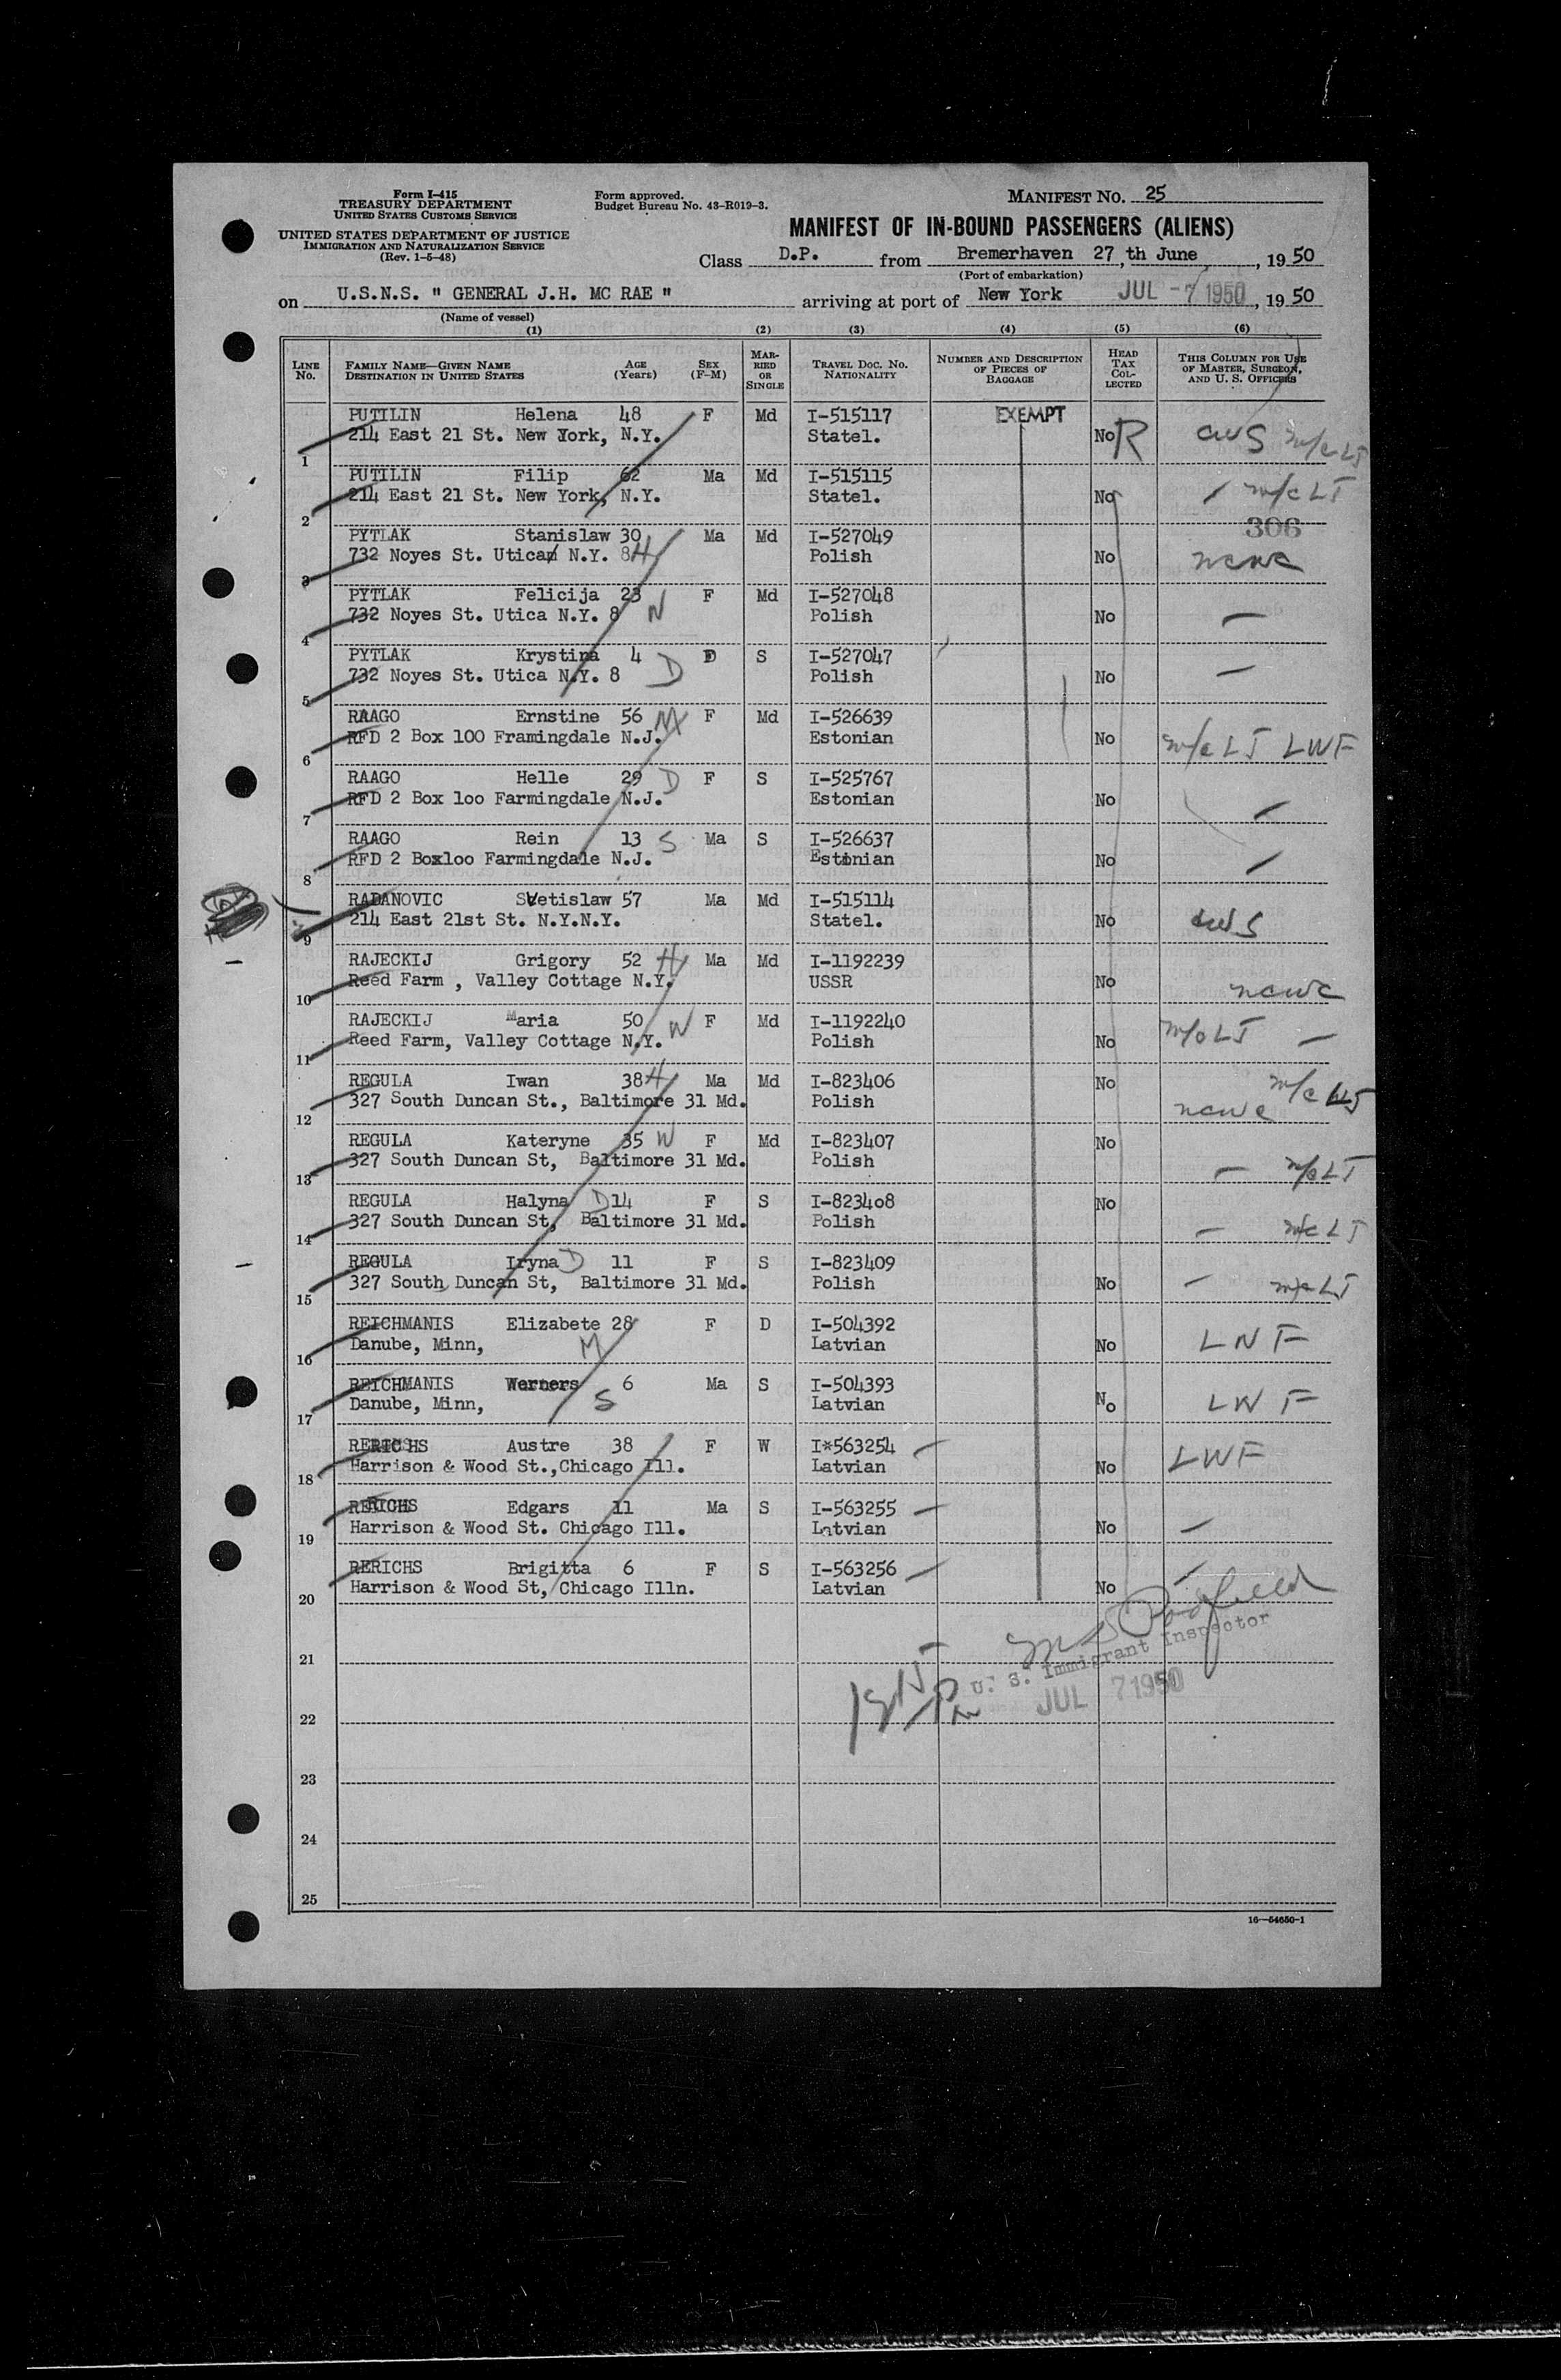 Form I-415
TREASURY DEPARTMENT
UNITED STATES CUSTOMS SERVICE
UNITED STATES DEPARTMENT OF JUSTICE
IMMIGRATION AND NATURALIZATION SERVICE
(Rev. 1-5-48)
Form approved.
Budget Bureau No. 43-R019-3.
MANIFEST NO. 25
MANIFEST OF IN-BOUND PASSENGERS (ALIENS)
Class D.P. from Bremerhaven 27, th June, 19 50
(Port of embarkation)
on U.S.N.S. " GENERAL J.H. MC RAE " arriving at port of New York JUL -7 1950, 19 50
(Name of vessel)
(1) (2) (3) (4) (5) (6)
LINE No. FAMILY NAME—GIVEN NAME DESTINATION IN UNITED STATES AGE (Years) SEX (F-M) MARRIED OR SINGLE TRAVEL DOC. NO. NATIONALITY NUMBER AND DESCRIPTION OF PIECES OF BAGGAGE HEAD TAX COLLECTED THIS COLUMN FOR USE OF MASTER, SURGEON, AND U. S. OFFICERS
PUTILIN Helena 48 F Md I-515117 EXEMPT
1 214 East 21 St. New York, N.Y. Statel. No R CWS m/c LJ
PUTILIN Filip 62 Ma Md I-515115
2 214 East 21 St. New York, N.Y. Statel. No m/c LJ
306
PYTLAK Stanislaw 30 Ma Md I-527049
3 732 Noyes St. Utica N.Y. 8 H Polish No ncwc
PYTLAK Felicija 23 F Md I-527048
4 732 Noyes St. Utica N.Y. 8 W Polish No —
PYTLAK Krystina 4 F S I-527047
5 732 Noyes St. Utica N.Y. 8 D Polish No —
RAAGO Ernstine 56 M F Md I-526639
6 RFD 2 Box 100 Framingdale N.J. Estonian No m/c LJ LWF
RAAGO Helle 29 D F S I-525767
7 RFD 2 Box loo Farmingdale N.J. Estonian No —
RAAGO Rein 13 S Ma S I-526637
8 RFD 2 Boxloo Farmingdale N.J. Estonian No —
RADANOVIC Svetislaw 57 Ma Md I-515114
9 214 East 21st St. N.Y.N.Y. Statel. No CWS
RAJECKIJ Grigory 52 H Ma Md I-1192239
10 Reed Farm , Valley Cottage N.Y. USSR No ncwc
RAJECKIJ Maria 50 W F Md I-1192240
11 Reed Farm, Valley Cottage N.Y. Polish No m/c LJ —
REGULA Iwan 38 H Ma Md I-823406 No m/c LJ
12 327 South Duncan St., Baltimore 31 Md. Polish ncwc
REGULA Kateryne 35 W F Md I-823407 No
13 327 South Duncan St, Baltimore 31 Md. Polish — m/c LJ
REGULA Halyna D 14 F S I-823408 No
14 327 South Duncan St, Baltimore 31 Md. Polish — m/c LJ
REGULA Iryna D 11 F S I-823409
15 327 South Duncan St, Baltimore 31 Md. Polish No — m/c LJ
REICHMANIS Elizabete 28 F D I-504392
16 Danube, Minn, M Latvian No LWF
REICHMANIS Werners 6 Ma S I-504393
17 Danube, Minn, S Latvian No LWF
RERICHS Austre 38 F W I*563254 —
18 Harrison & Wood St.,Chicago Ill. Latvian No LWF
RERICHS Edgars 11 Ma S I-563255 —
19 Harrison & Wood St. Chicago Ill. Latvian No —
RERICHS Brigitta 6 F S I-563256 —
20 Harrison & Wood St, Chicago Illn. Latvian No —
21 U. S. Immigrant Inspector
JUL 7 1950
22
23
24
25
16—54650-1